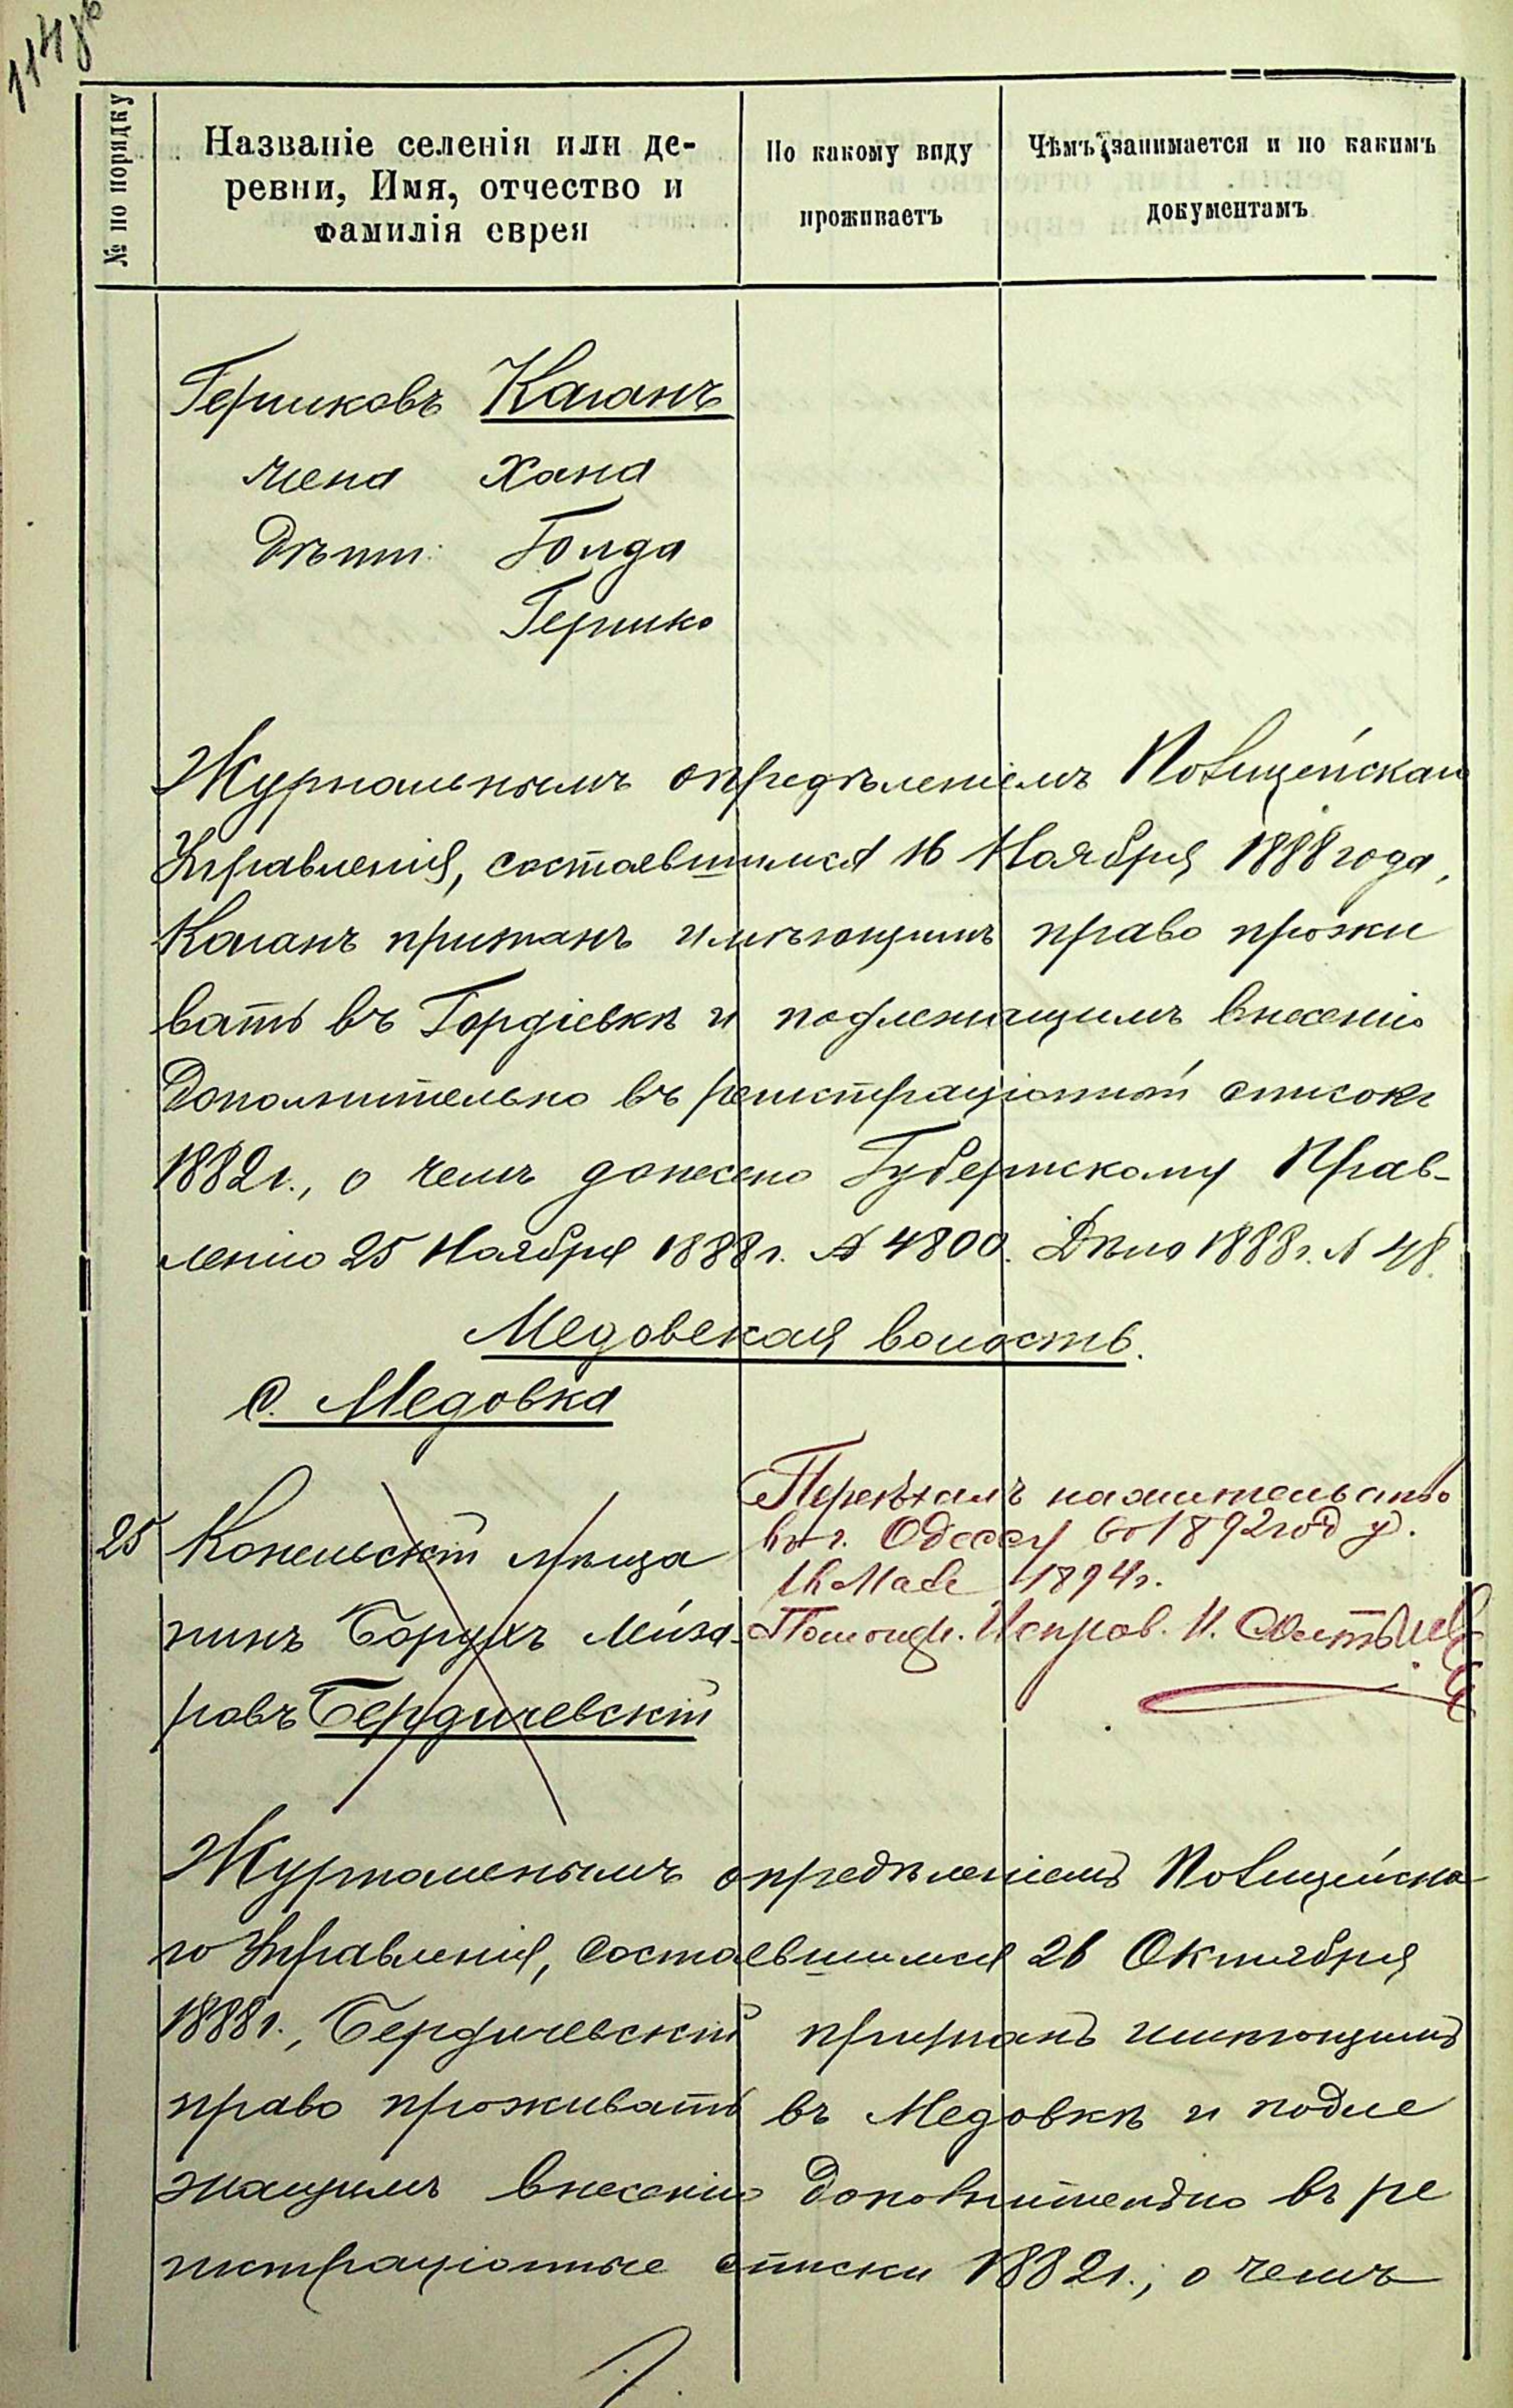 114 об
№ по порядку
Названіе селенія или де-
ревни, Имя, отчество и
Фамилія еврея
По какому виду
проживаетъ
Чѣмъ занимается и по какимъ
документамъ
Гершковъ Каганъ
жена Хана
Дѣти: Голда
Гершко
Журнальнымъ опредѣленіемъ Полицейскаго
Управленія, состоявшимся 16 Ноября 1888 года,
Каганъ признанъ имѣющимъ право прожи
вать въ Гордіевкѣ и подлежащимъ внесенію
дополнительно въ регистраціонный списокъ
1882 г., о чемъ донесено Губернскому Прав-
ленію 25 Ноября 1888 г. № 4800. Дѣло 1888 г. № 48.
Медовская волость.
с. Медовка
25 Конельскій мѣща
нинъ Борухъ Лейза-
ровъ Бердичевскій
Переѣхалъ на жительство
въ г. Одессу въ 1892 году.
1894 г.
Помощ. Исправ.
Журнальнымъ опредѣленіемъ Полицейска
го Управленія, состоявшимся 26 Октября
1888 г., Бердичевскій признанъ имѣющимъ
право проживать въ Медовкѣ и подле
жащимъ внесенію дополнительно въ ре
гистраціонные списки 1882 г., о чемъ